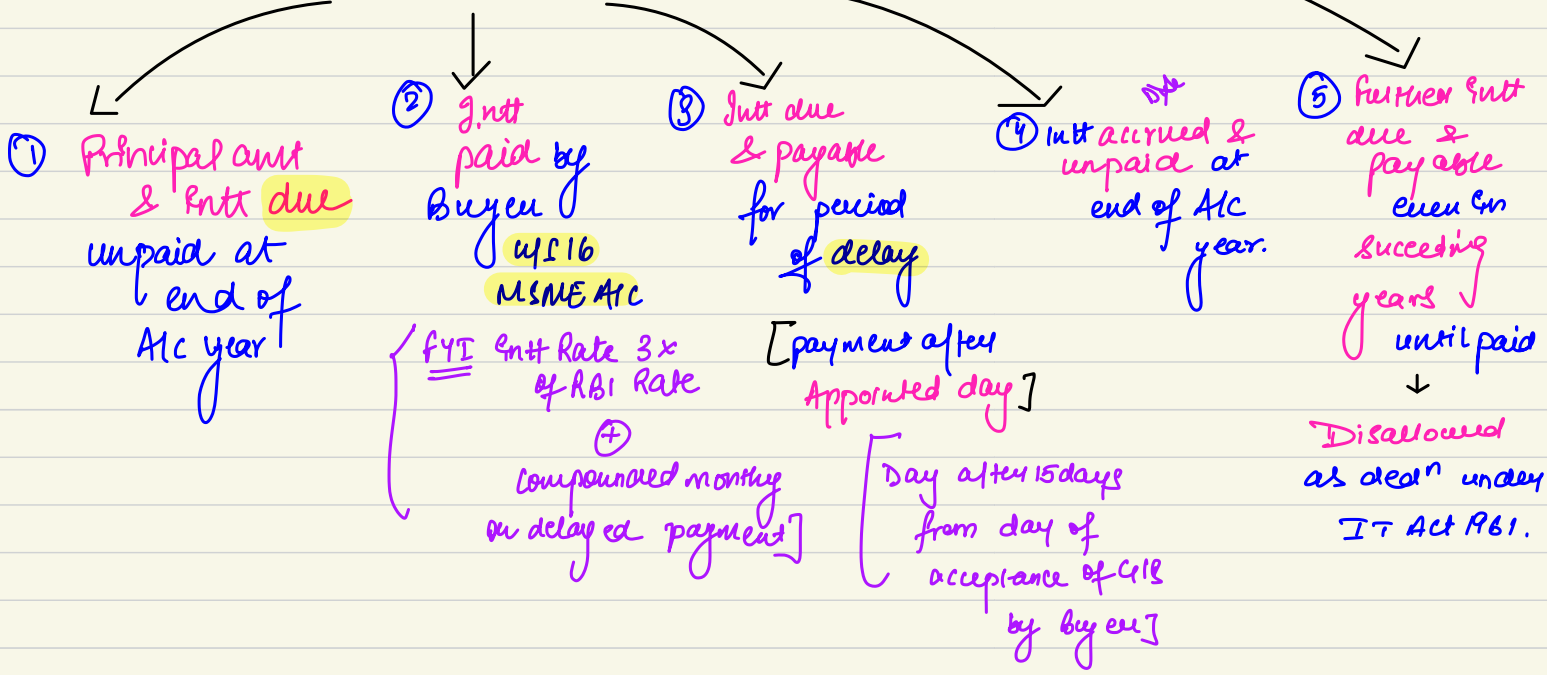 ①
Principal amt
& Intt due
unpaid at
end of
A/c year
②
Intt
paid by
Buyer
u/s 16
MSME A/c
FYI Intt Rate 3x
of RBI Rate
+
compounded monthly
on delayed payment]
③
Intt due
& payable
for period
of delay
[payment after
Appointed day]
[Day after 15 days
from day of
acceptance of G/S
by Buyer]
④ Intt accrued &
unpaid at
end of A/c
year.
⑤ Further Intt
due &
payable
even in
succeeding
years
until paid
↓
Disallowed
as dedⁿ under
IT Act 1961.